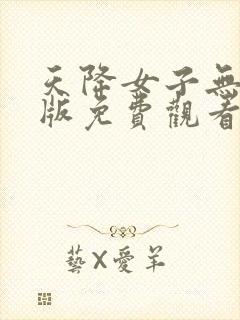 天降女子無
版免費觀看
藝X愛羊